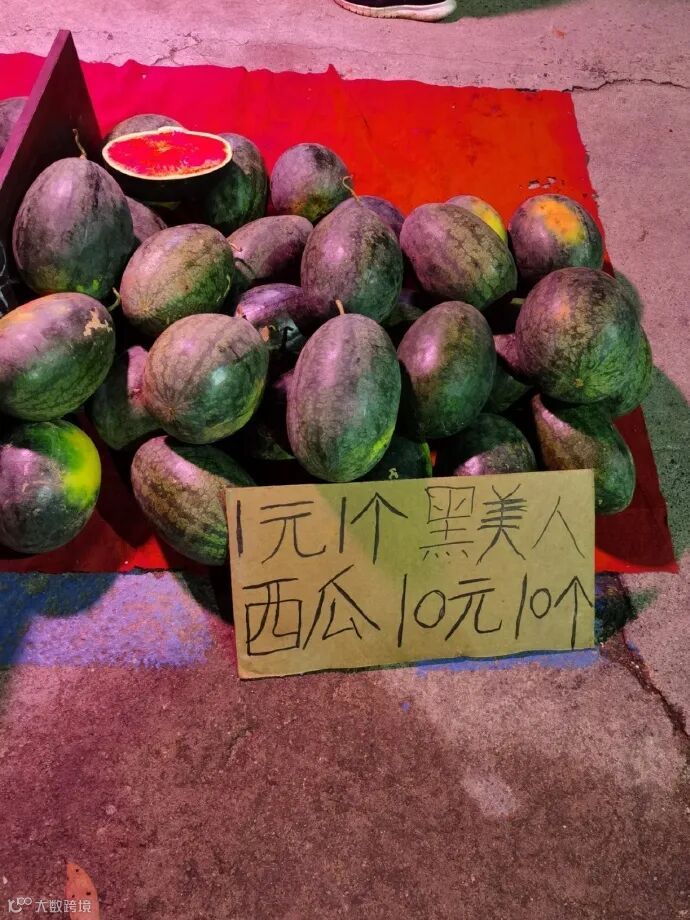 1元1个黑美人
西瓜10元10个
大数跨境